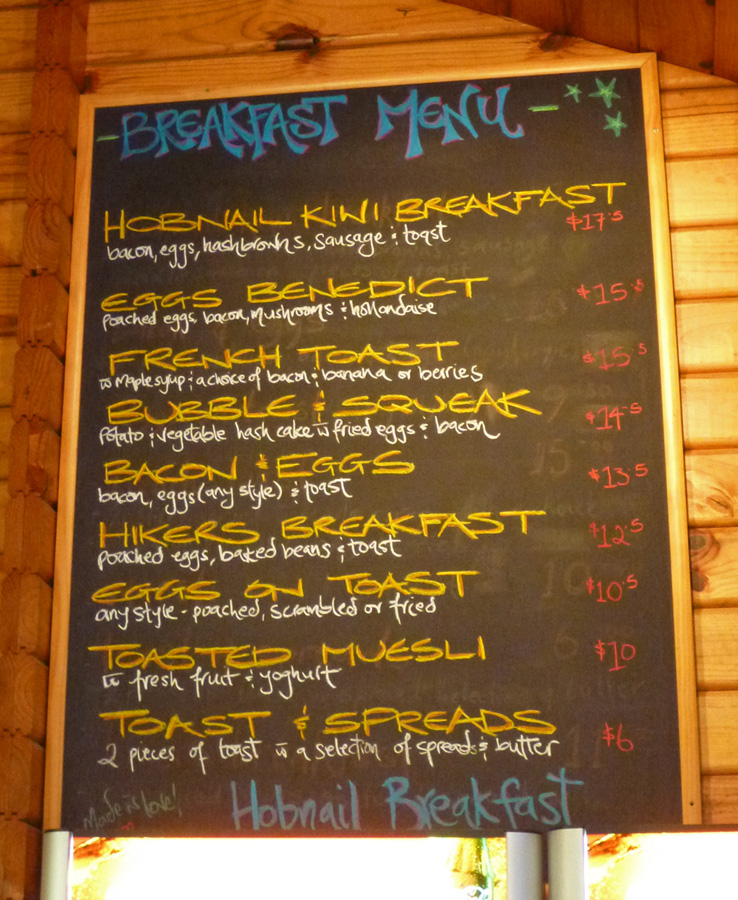 -BREAKFAST MENU-
HOBNAIL KIWI BREAKFAST $17.5
bacon, eggs, hashbrowns, sausage & toast
EGGS BENEDICT $15.5
Poached eggs, bacon, mushrooms & hollandaise
FRENCH TOAST $15.5
w maple syrup & a choice of bacon & banana or berries
BUBBLE & SQUEAK $14.5
Potato & vegetable hash cake w fried eggs & bacon
BACON & EGGS $13.5
bacon, eggs (any style) & toast
HIKERS BREAKFAST $12.5
poached eggs, baked beans & toast
EGGS ON TOAST $10.5
any style - poached, scrambled or fried
TOASTED MUESLI $10
w fresh fruit & yoghurt
TOAST & SPREADS $6
2 pieces of toast w a selection of spreads & butter
Made is love!
Hobnail Breakfast